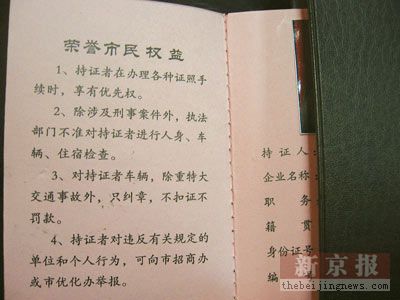 荣誉市民权益
1、持证者在办理各种证照手
续时，享有优先权。
2、除涉及刑事案件外，执法
部门不准对持证者进行人身、车
辆、住宿检查。
3、对持证者车辆，除重特大
交通事故外，只纠章，不扣证不
罚款。
4、持证者对违反有关规定的
单位和个人行为，可向市招商办
或市优化办举报。
持证人:
企业名称:
职务
籍贯
身份证号
编
新京报
www.thebeijingnews.com